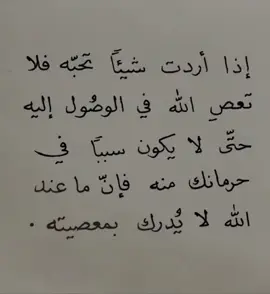 إذا أردت شيئاً تحبّه فلا
تعصِ الله في الوصُول إليه
حتّى لا يكون سببًا في
حرمانك منه فإنّ ما عند
الله لا يُدرك بمعصيته .